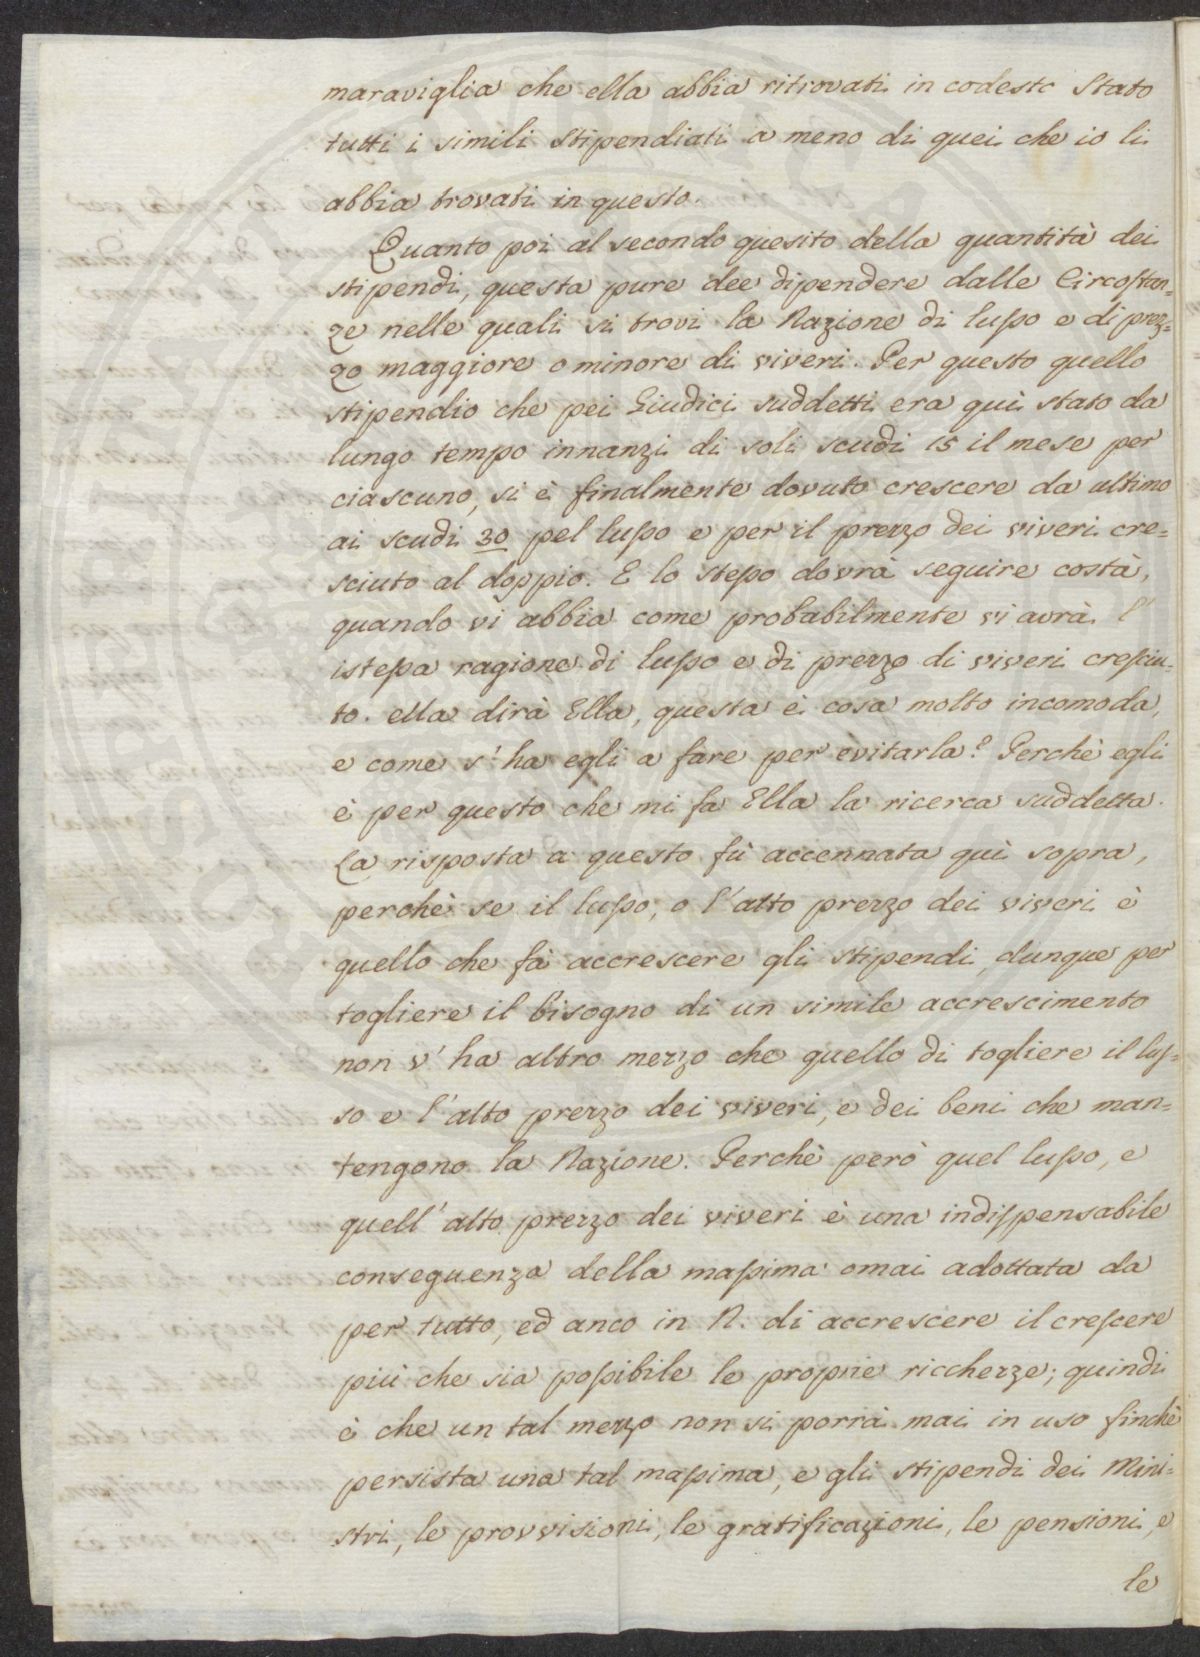 maraviglia che ella abbia ritrovati in codesto Stato
tutti i simili stipendiati a meno di quei che io li
abbia trovati in questo.
Quanto poi al secondo quesito della quantità dei
stipendi, questa pure dee dipendere dalle Circostan=
ze nelle quali si trovi la Nazione di lusso e di prez=
zo maggiore o minore di viveri. Per questo quello
stipendio che pei Giudici suddetti era quì stato da
lungo tempo innanzi di soli scudi 15 il mese per
ciascuno, si è finalmente dovuto crescere da ultimo
ai scudi 30 pel lusso e per il prezzo dei viveri cre=
sciuto al doppio. E lo stesso dovrà seguire costà,
quando vi abbia come probabilmente vi avrà l'
istessa ragione di lusso e di prezzo di viveri cresciu=
to. Ma dirà Ella, questa è cosa molto incomoda,
e come s'ha egli a fare per evitarla? Perchè egli
è per questo che mi fa Ella la ricerca suddetta.
La risposta a questo fù accennata quì sopra,
perchè se il lusso, o l'alto prezzo dei viveri è
quello che fà accrescere gli stipendi, dunque per
togliere il bisogno di un simile accrescimento
non v'ha altro mezzo che quello di togliere il lus=
so e l'alto prezzo dei viveri, e dei beni che man=
tengono la Nazione. Perchè però quel lusso, e
quell'alto prezzo dei viveri è una indispensabile
conseguenza della massima omai adottata da
per tutto, ed anco in N. di accrescere il crescere
più che sia possibile le proprie riccherze; quindi
è che un tal mezzo non si porrà mai in uso finchè
persista una tal massima, e gli stipendi dei Mini=
stri, le provvisioni, le gratificazioni, le pensioni, e
le